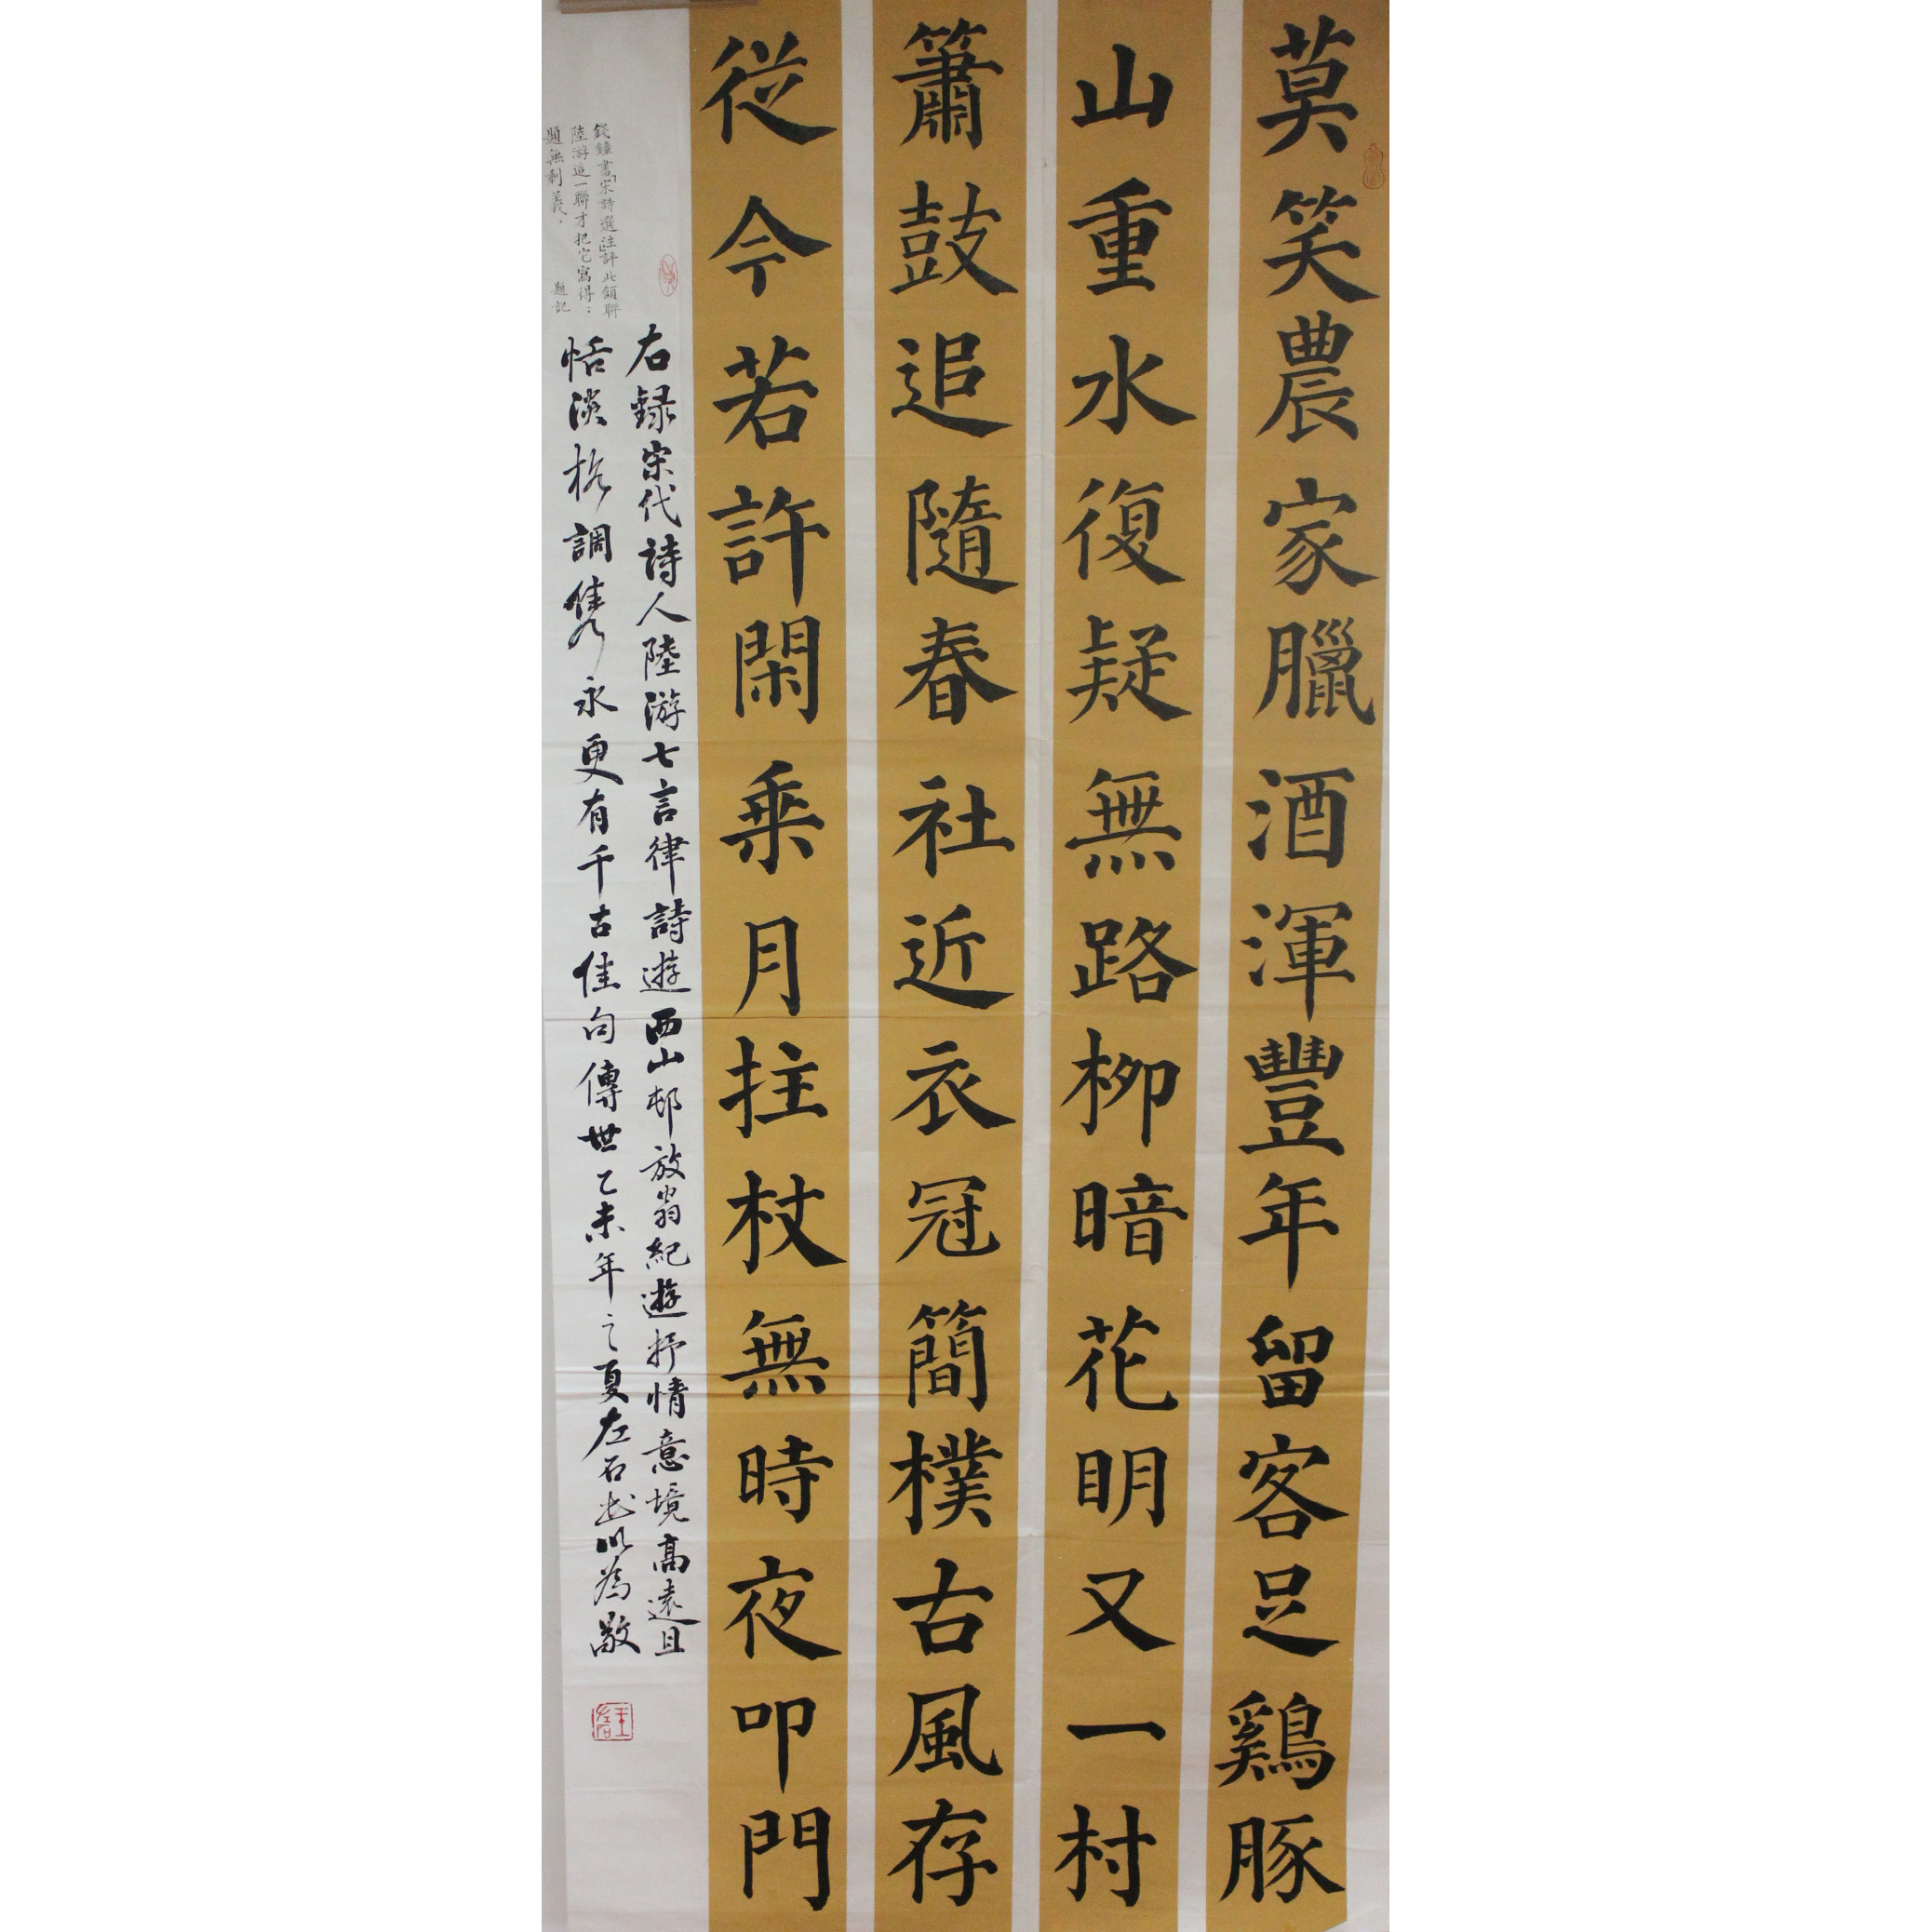 莫笑農家臘酒渾豐年留客足鷄豚
山重水復疑無路柳暗花明又一村
簫鼓追隨春社近衣冠簡樸古風存
從今若許閑乘月拄杖無時夜叩門
右録宋代詩人陸游七言律詩遊西山邨放翁紀遊抒情意境高遠且
恬淡格調雋永更有千古佳句傳世乙未年之夏左石書以為敬
錢鐘書「宋詩選注」評此頷聯
陸游這一聯才把它寫得：
題無剩義。 題記